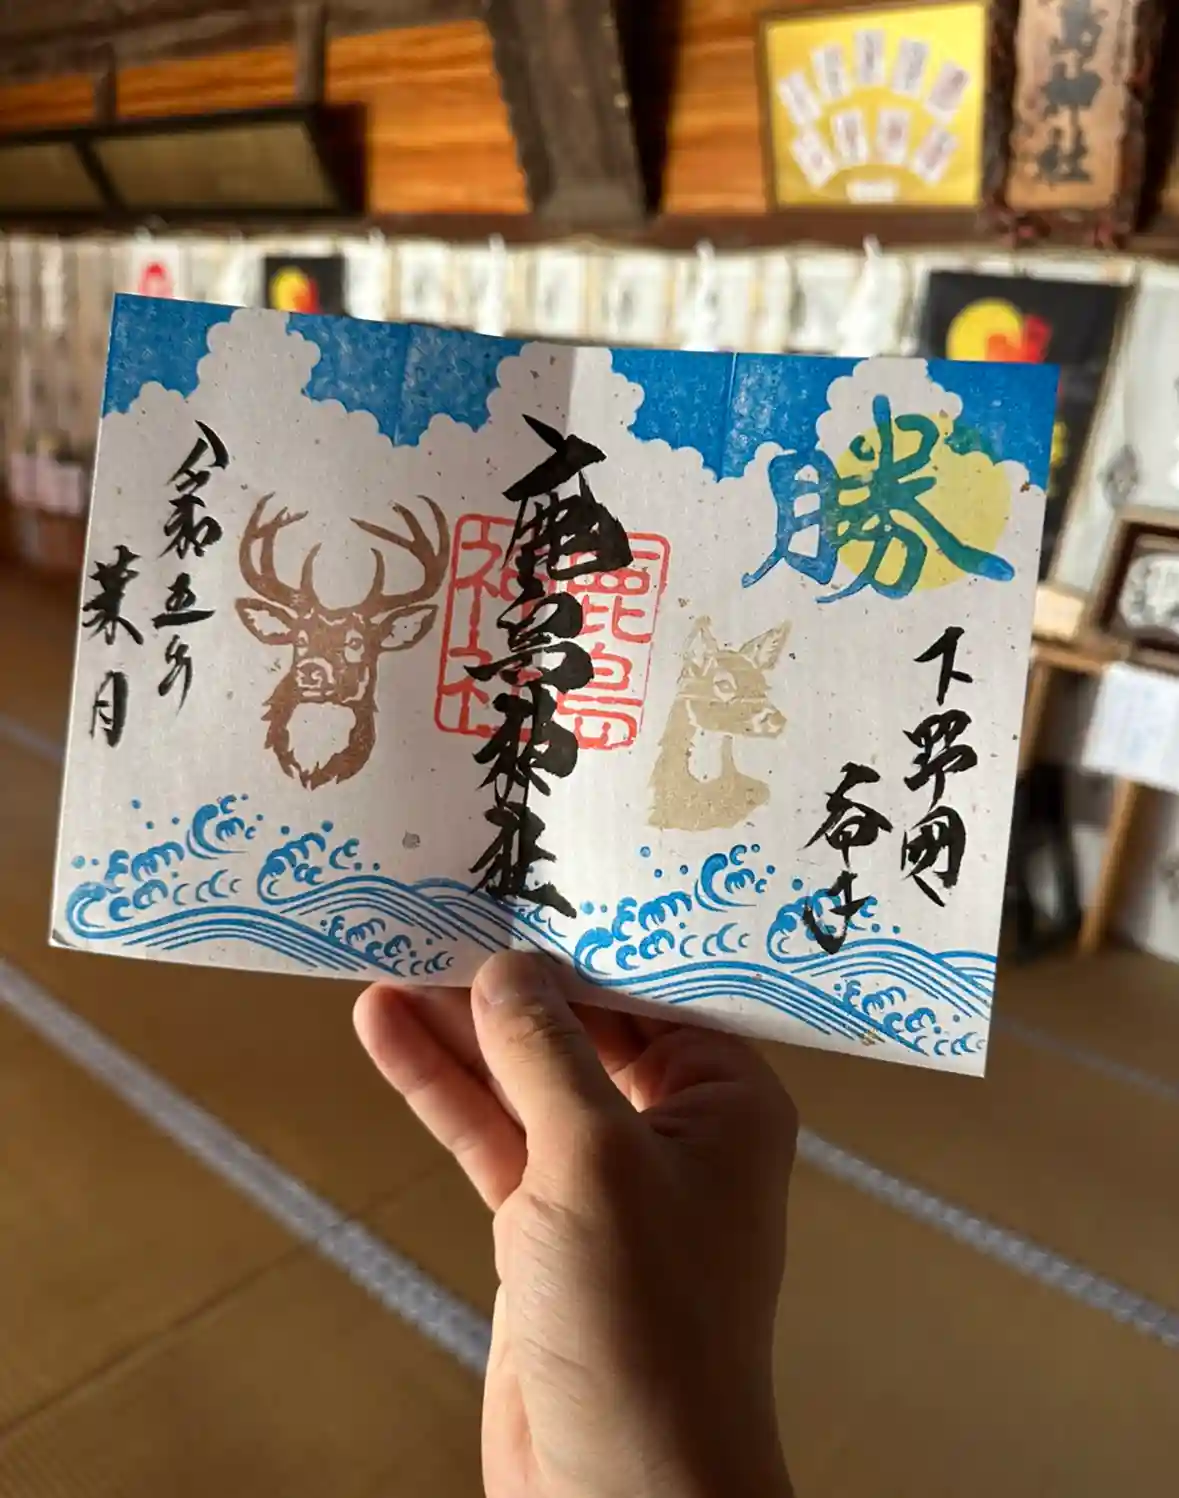 島神社
勝
下野國
谷中
鹿島神社
鹿島神社
令和五年
葉月